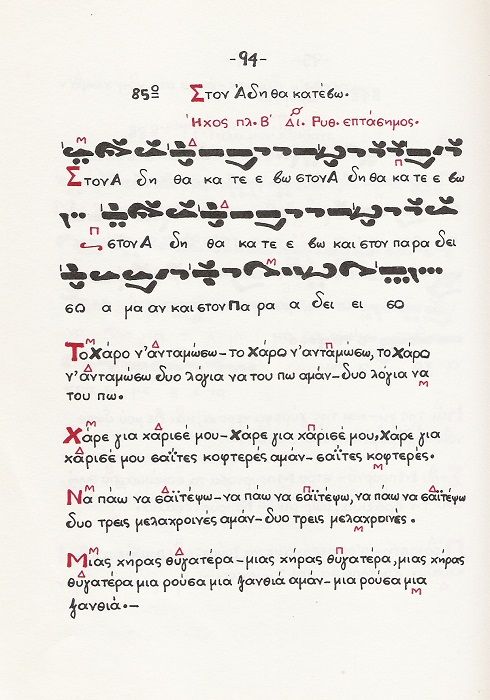 -94-
85ο Στον Άδη θα κατέβω.
Ήχος πλ. Β' Δι. Ρυθ. επτάσημος.
Στον Α δη θα κα τε ε βω στον Α δη θα κα τε ε βω
στον Α δη θα κα τε ε βω και στον πα ρα δει
σο α μα αν και στον Πα ρα α δει ει σο
Το Χάρο ν' ανταμώσω-το Χάρω ν' ανταμώσω, το Χάρω
ν' ανταμώσω δυο λόγια να του πω αμάν-δυο λόγια να
του πω.
Χάρε για χάρισέ μου-Χάρε για χάρισέ μου, Χάρε για
χάρισέ μου σαΐτες κοφτερές αμάν-σαΐτες κοφτερές.
Να πάω να σαϊτέψω-να πάω να σαϊτέψω, να πάω να σαϊτέψω
δυο τρεις μελαχροινές αμάν-δυο τρεις μελαχροινές.
Μιας χήρας θυγατέρα-μιας χήρας θυγατέρα, μιας χήρας
θυγατέρα μια ρούσα μια ξανθιά αμάν-μια ρούσα μια
ξανθιά.-